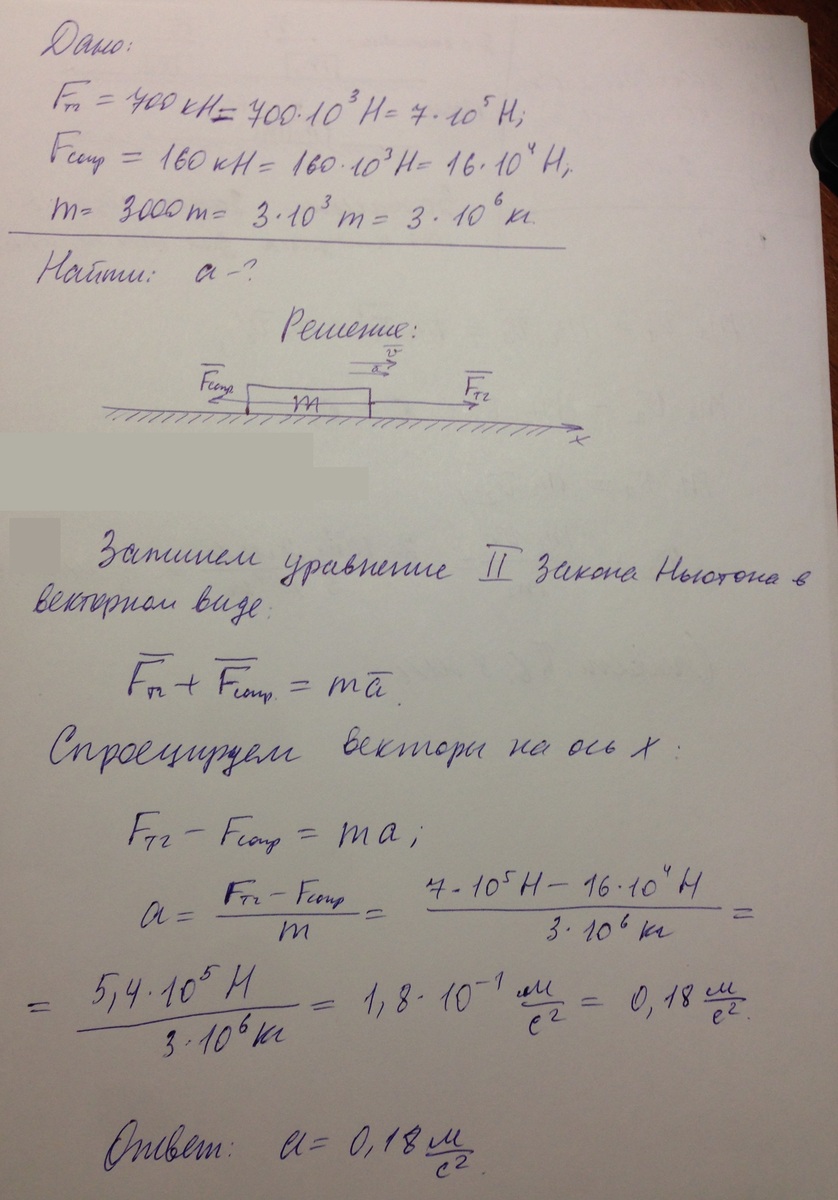 Дано:
Fтг = 700 кН = 700·10³ Н = 7·10⁵ Н;
Fсопр = 160 кН = 160·10³ Н = 16·10⁴ Н;
m = 3000 т = 3·10³ т = 3·10⁶ кг.
Найти: a - ?
Решение:
v̅
a̅
F̅сопр m F̅тг
x
Запишем уравнение II Закона Ньютона в
векторном виде:
F̅тг + F̅сопр. = ma̅.
Спроецируем векторы на ось X:
Fтг − Fсопр = ma;
a = (Fтг − Fсопр)/m = (7·10⁵ Н − 16·10⁴ Н)/(3·10⁶ кг) =
= (5,4·10⁵ Н)/(3·10⁶ кг) = 1,8·10⁻¹ м/с² = 0,18 м/с².
Ответ: a = 0,18 м/с².